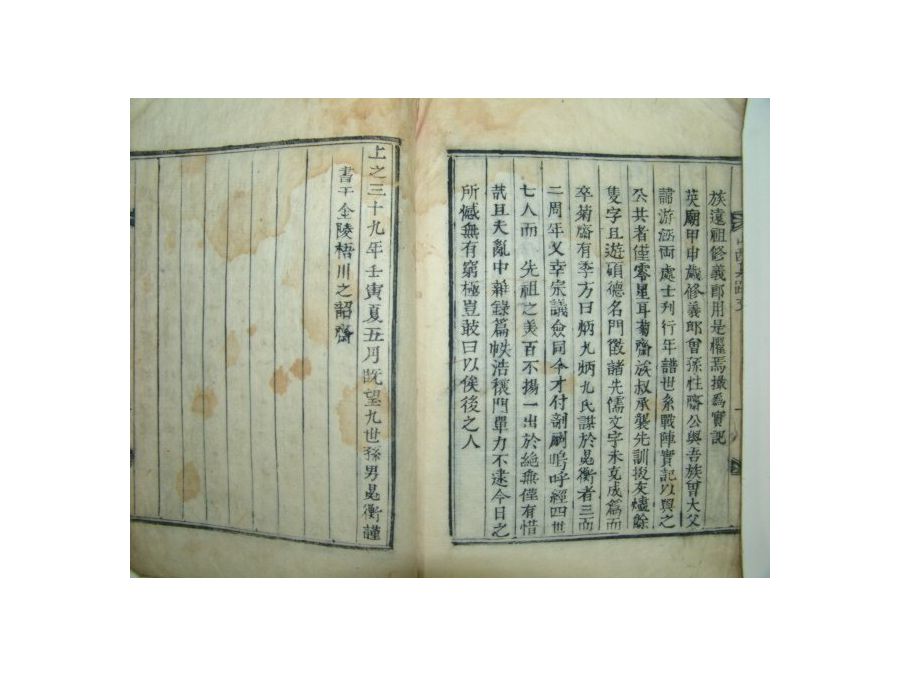 族遠祖修義郎用是懼焉撮爲實記
英廟甲申歲修義郎曾孫柱齋公與吾族曾大父
諱游涵兩處士刋行年譜世系戰陣實記以與之
公共者僅零星耳菊齋族叔承襲先訓拔灰燼餘
隻字且遊碩德名門徵諸先儒文字未克成篇而
卒菊齋有季方曰炳九炳九氏謀於晃衡者三而
二周年又幸宗議僉同今才付剞劂嗚呼經四世
七人而先祖之美百不揚一出於絶無僅有惜
哉且夫亂中雜錄篇帙浩穰門單力不逮今日之
所憾無有窮極豈敢曰以俟後之人
上之三十九年壬寅夏五月旣望九世孫男晃衡謹
書于金陵梧川之韶齋